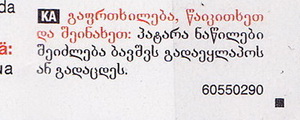 da
KA გაფრთხილება, წაიკითხეთ
და შეინახეთ: პატარა ნაწილები
ä:
შეიძლება ბავშვს გადაეყლაპოს
ua
ან გადაცდეს.
60550290